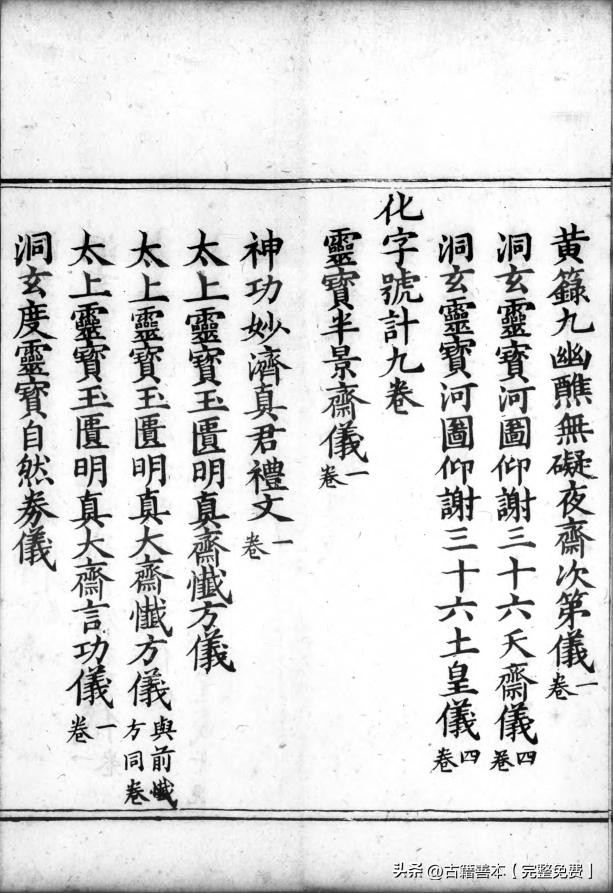 黄籙九幽醮無礙夜齋次第儀一卷
洞玄靈寳河圖仰謝三十六天齋儀四卷
洞玄靈寳河圖仰謝三十六土皇儀四卷
化字號計九卷
靈寳半景齋儀一卷
神功妙濟真君禮文一卷
太上靈寳玉匱明真齋懺方儀
太上靈寳玉匱明真大齋懺方儀與前懺方同卷
太上靈寳玉匱明真大齋言功儀一卷
洞玄度靈寳自然券儀
头条 @古籍善本【完整免费】